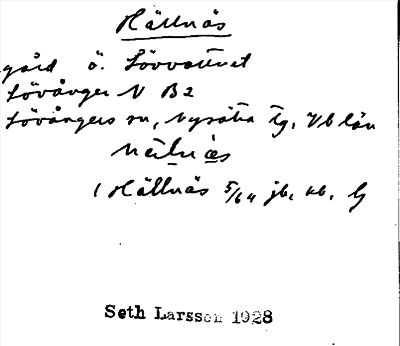 Hällnäs
gård ö. Lövvattnet
Lövånger N B2
Lövångers sn, Nysätra tg, Vb län
1 Hällnäs 5/64 jb, kb, G
Seth Larsson 1928